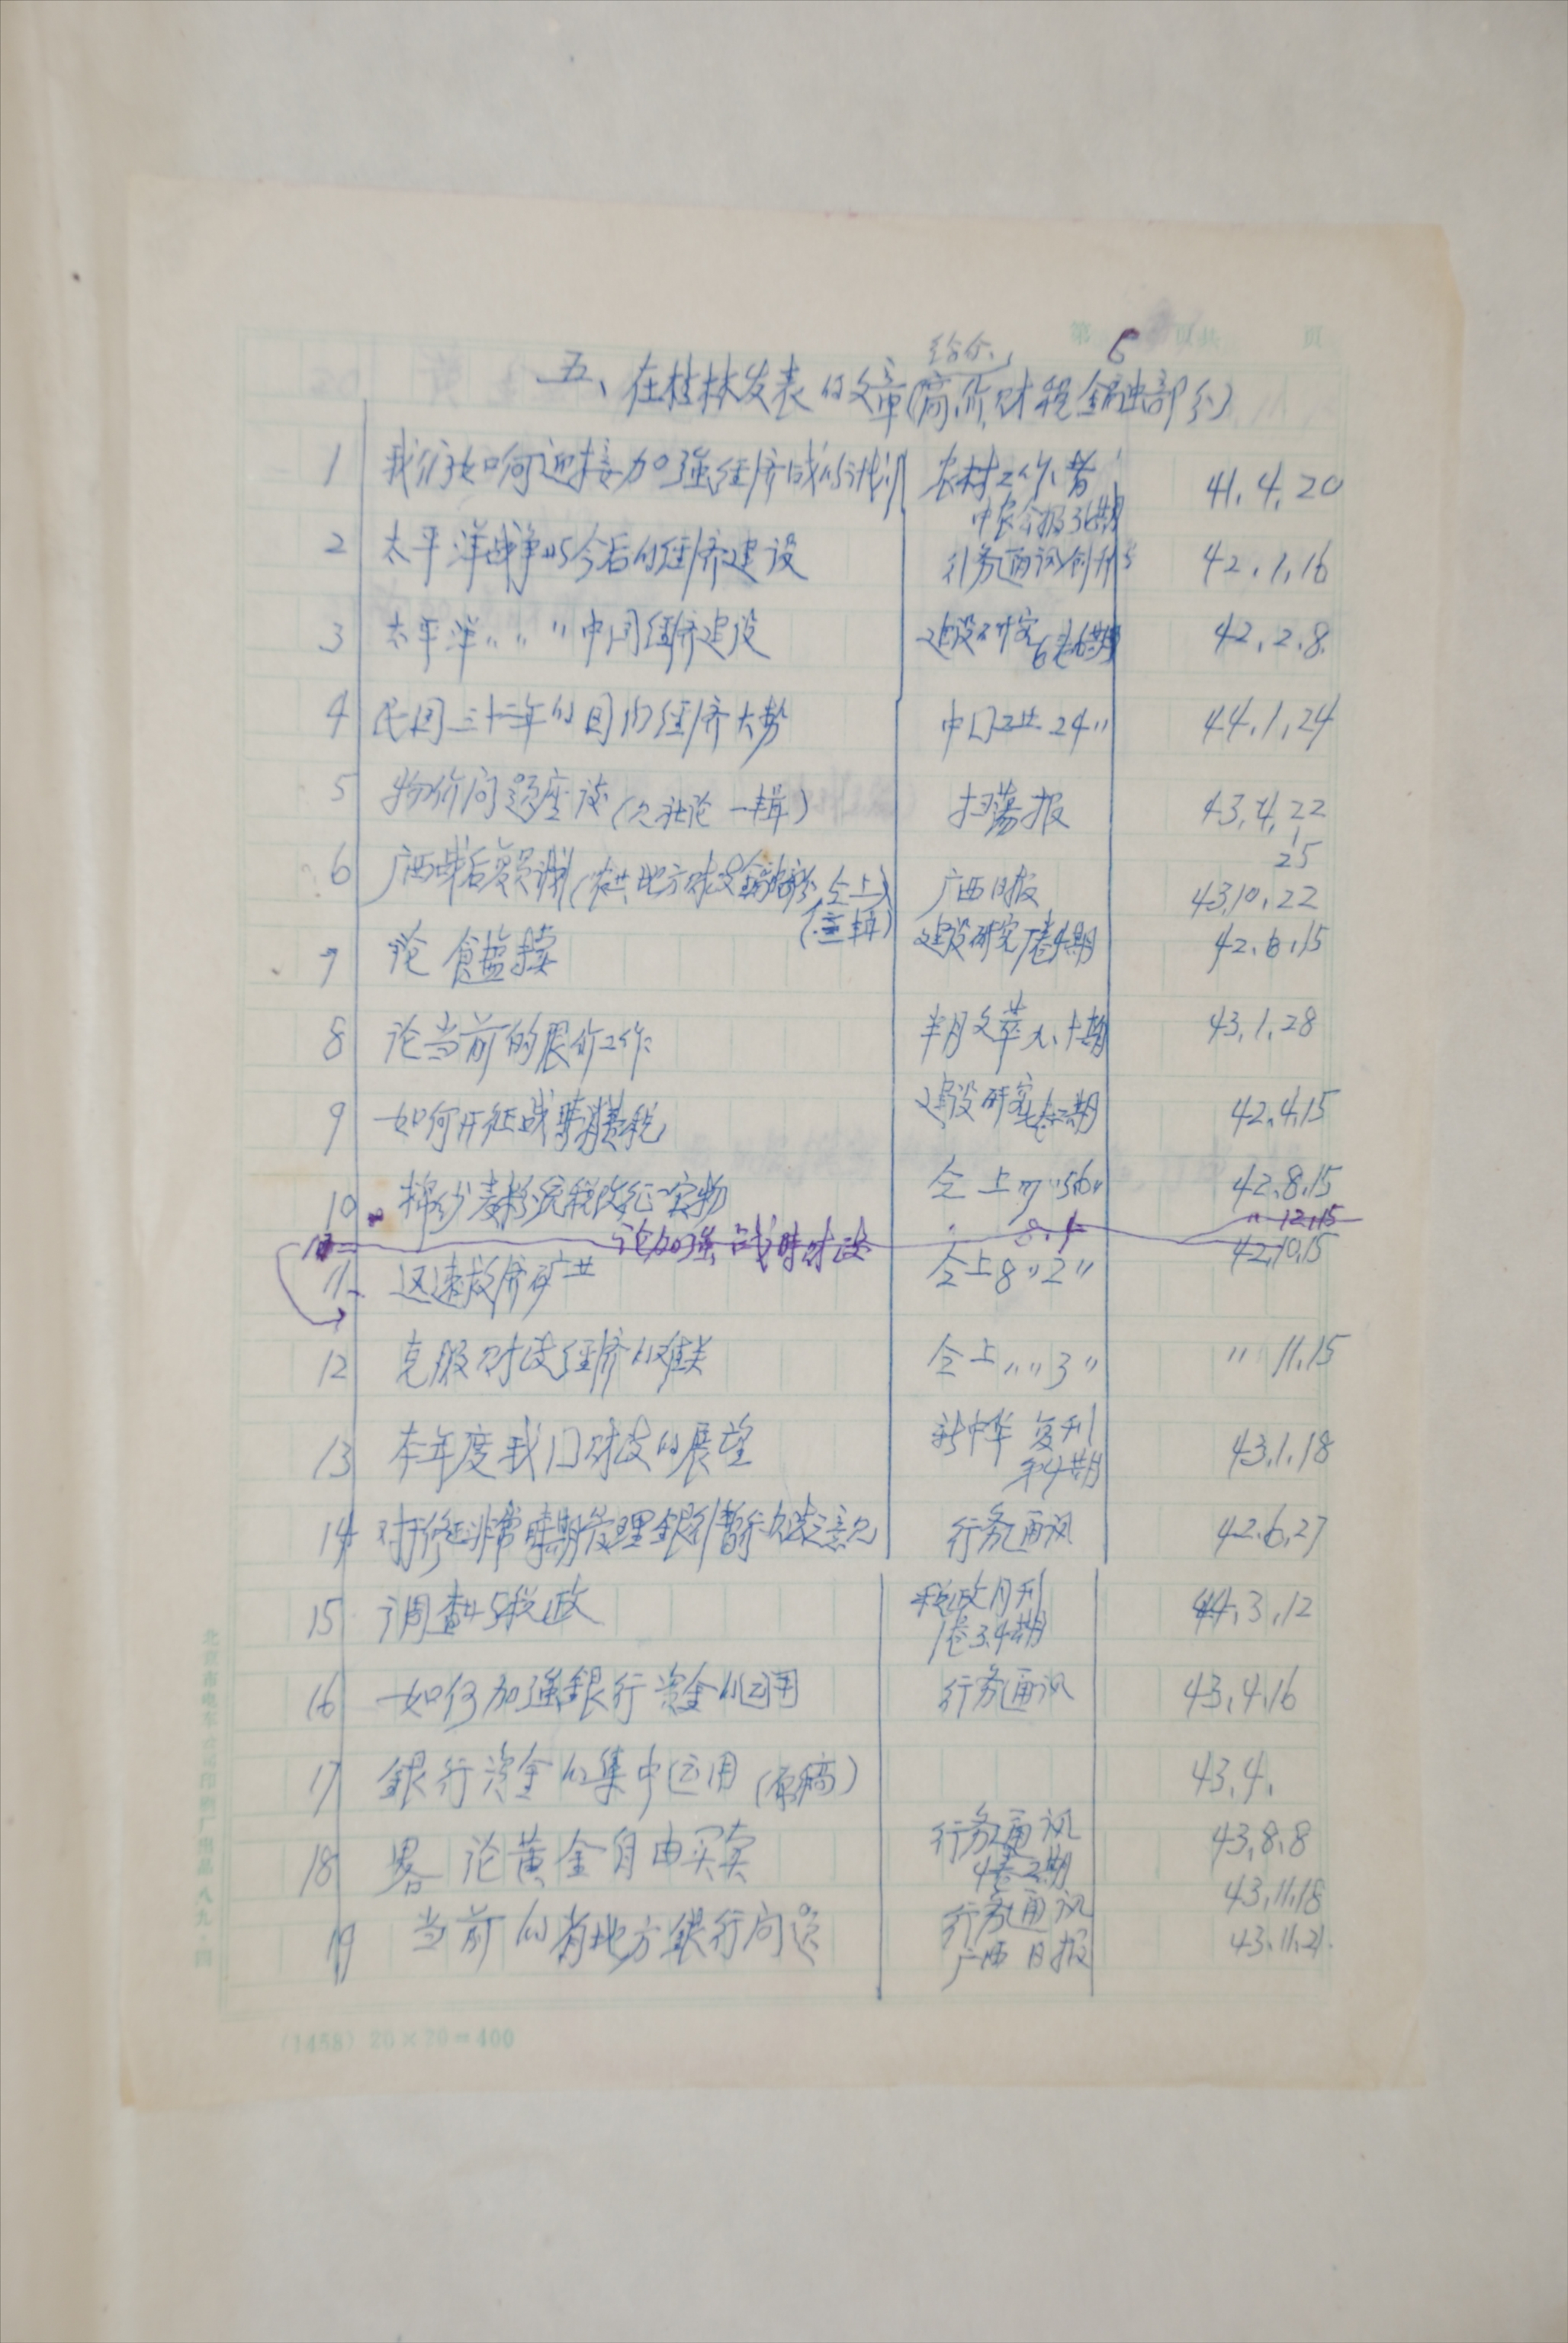 第 5 页共 页
综合、
五、在桂林发表的文章(商、价、财税金融部分)
1 我们如何迎接加强经济战的计划 农村工作者 41.4.20
中农会报36期
2 太平洋战争与今后的经济建设 行务通讯创刊号 42.1.16
3 太平洋〃〃〃中国经济建设 建设研究6卷6期 42.2.8.
4 民国三十二年的国内经济大势 中国工业24〃 44.1.24
5 物价问题座谈(见社论一辑) 扫荡报 43.4.22
25
6 广西战后 (农 地方财政金融部分、仝上) 广西日报 43.10.22
7 论食盐专卖 建设研究7卷4期 42.6.15
8 论当前的限价工作 半月文萃九、十期 43.1.28
9 如何开征战时消费税 建设研究七卷二期 42.4.15
10 棉纱麦粉统税改征实物 仝上7〃5.6〃 42.8.15
论加强战时财政 8.4 〃12.15
11 迅速救济矿业 仝上8〃2〃 42.10.15
12 克服财政经济的难关 仝上〃〃3〃 〃 11.15
13 本年度我国财政的展望 新中华 复刊 43.1.18
14 对于修正非常时期管理银行暂行办法之意见 行务通讯 42.6.27
15 调查与税政 税政月刊 44.3.12
1卷3.4期
16 如何加强银行资金的运用 行务通讯 43.4.16
17 银行资金的集中运用(原稿) 43.4.
18 略论黄金自由买卖 行务通讯 43.8.8
4卷2期
19 当前的省地方银行问题 行务通讯 43.11.18
广西日报 43.11.21.
北京市电车公司印刷厂出品 八九·四
(1458) 20×20=400